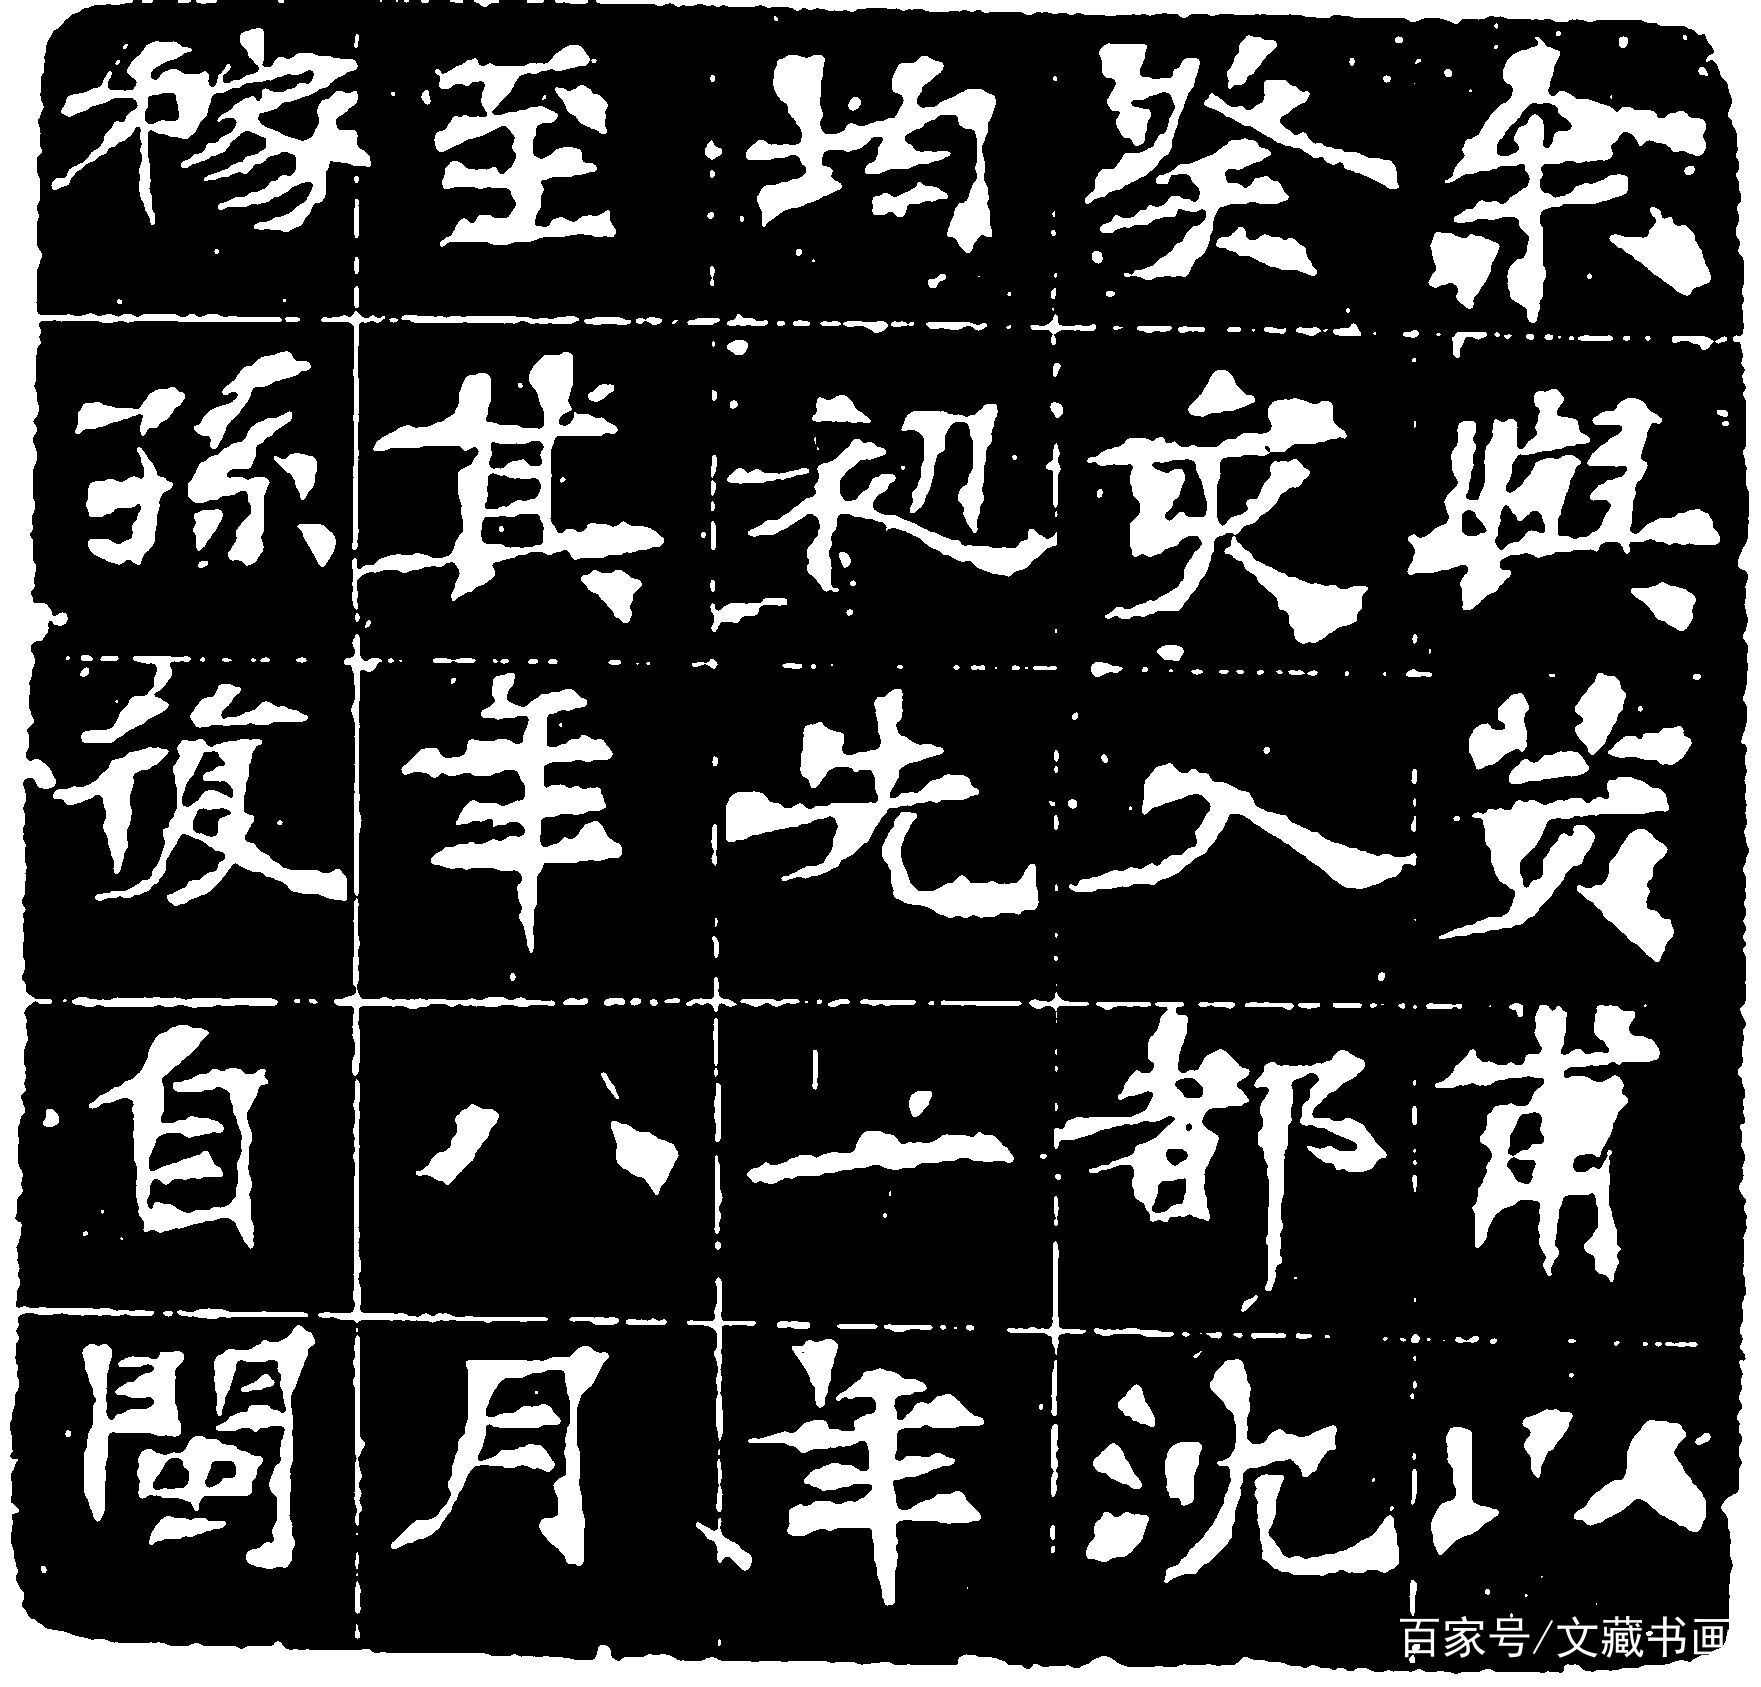 余與荄甫以
癸亥入都沈
均初先一年
至其年八月
稼孫復自閩
百家号/文藏书画